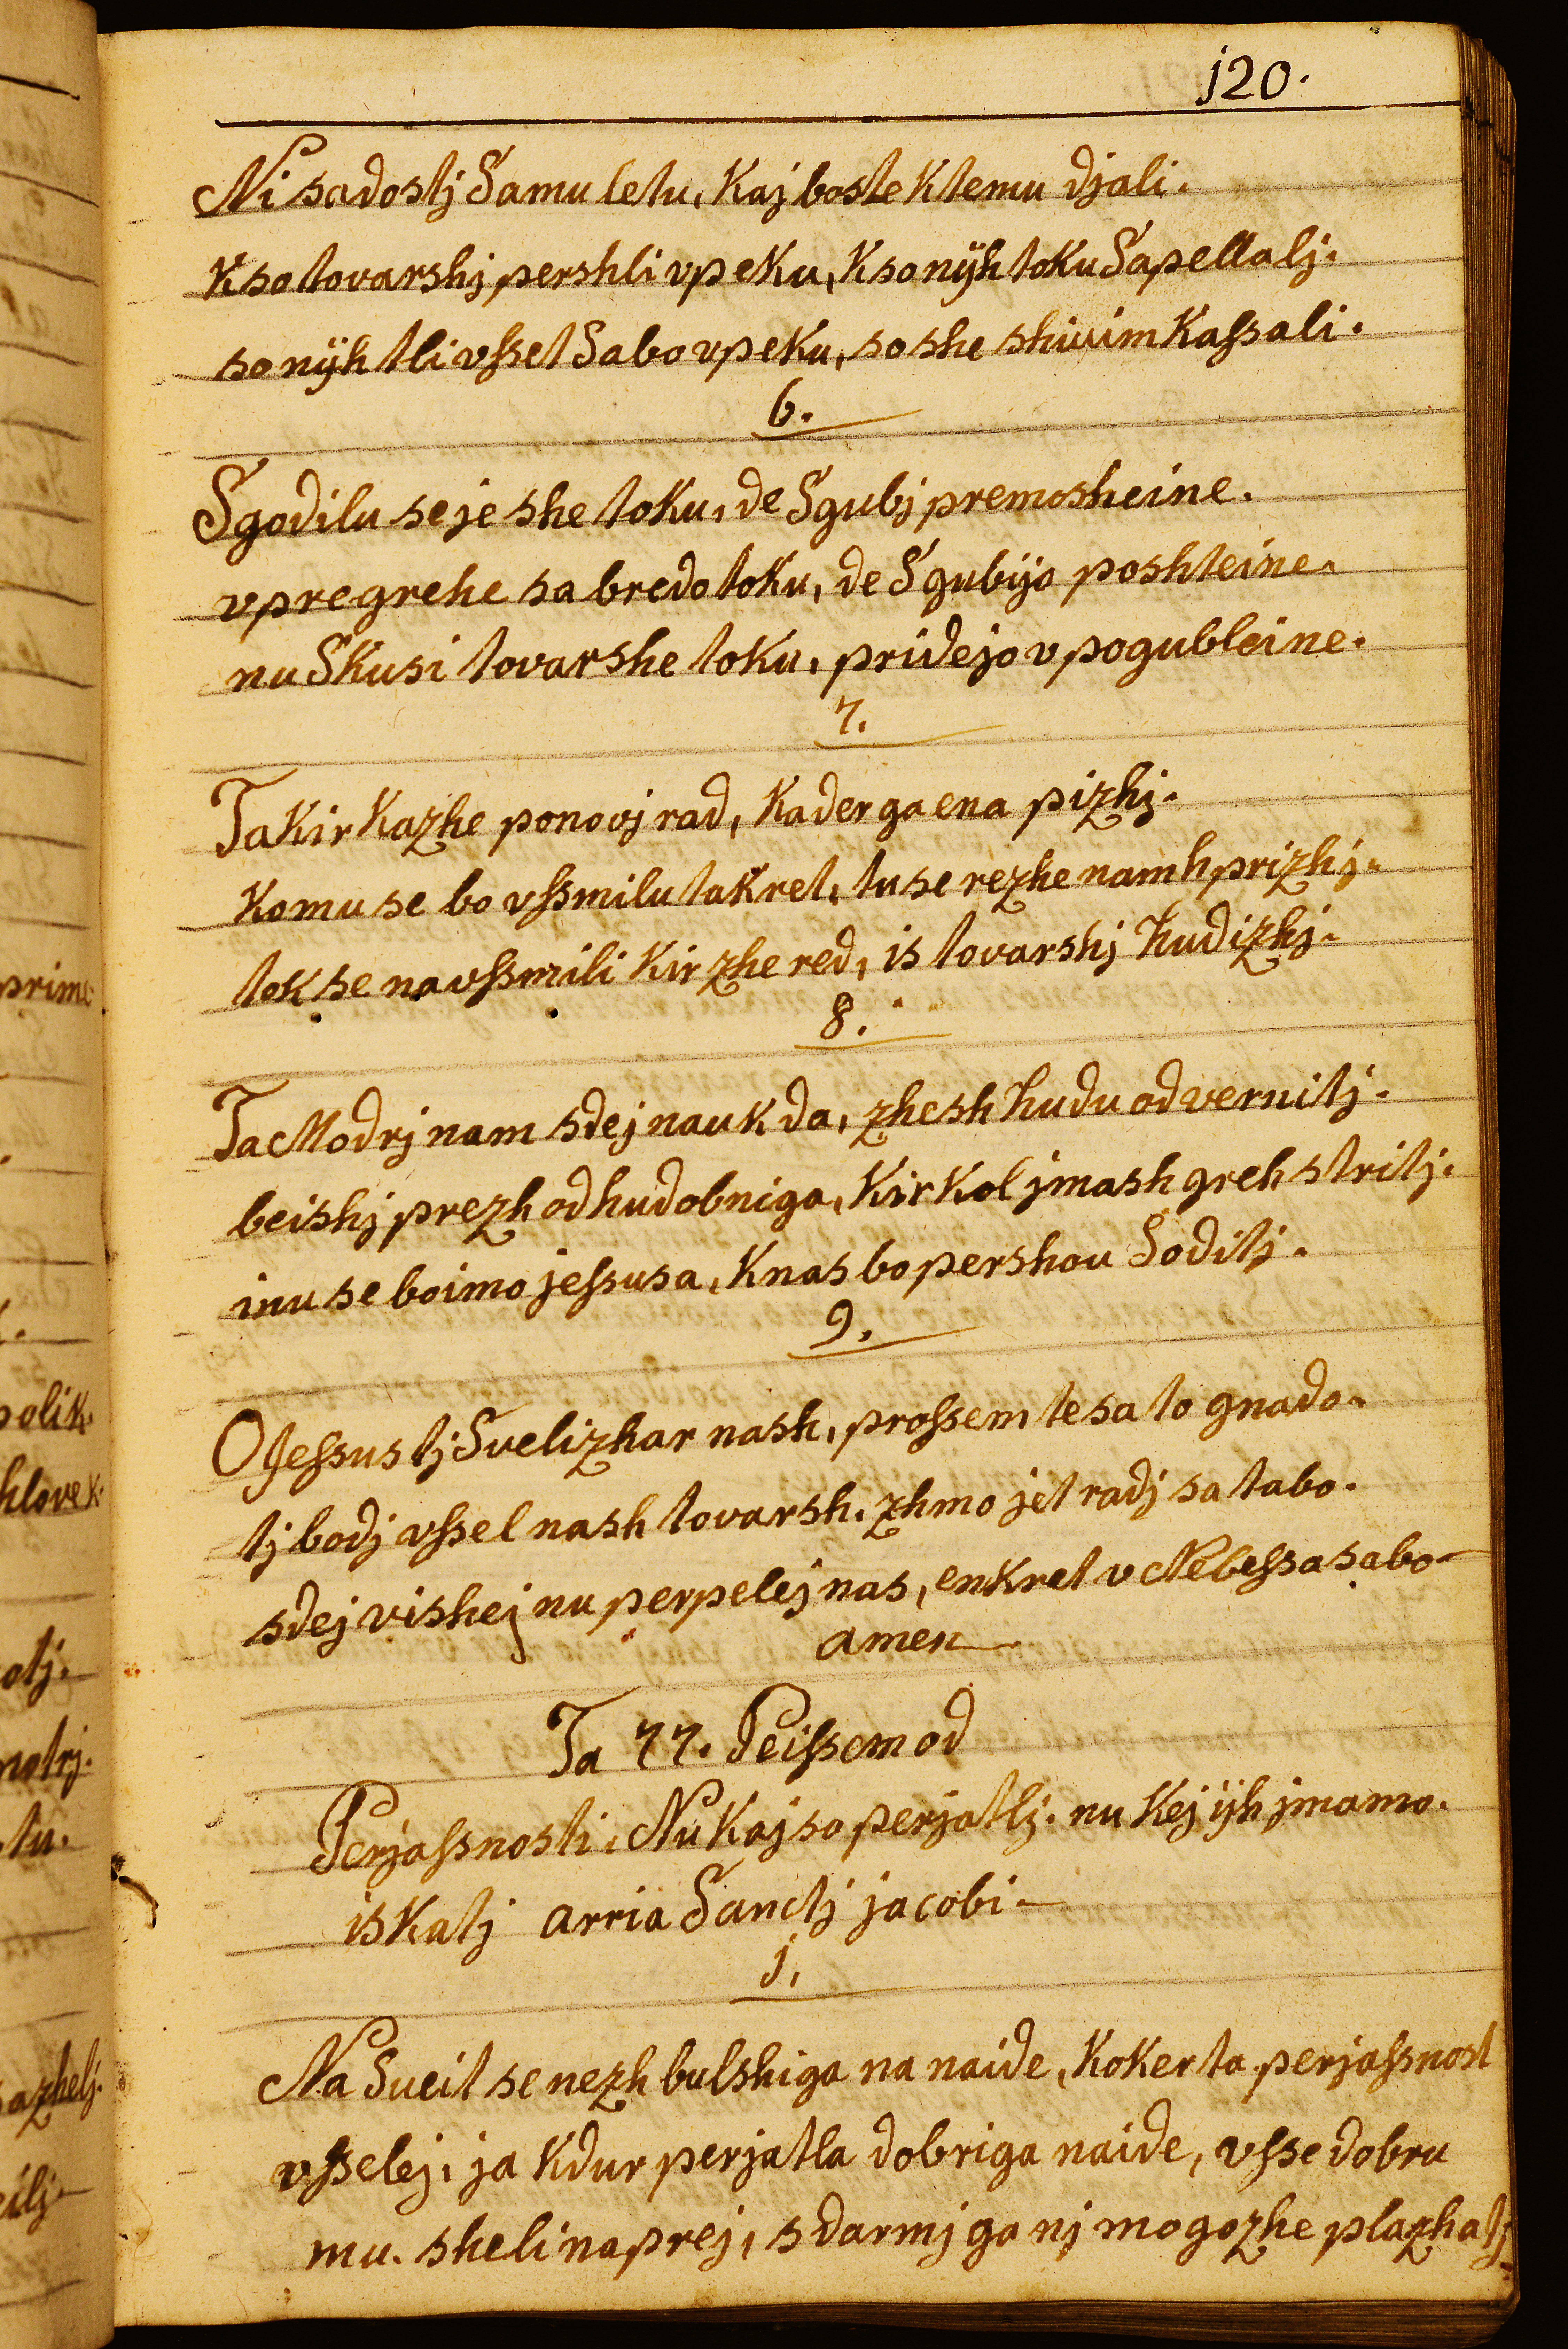 j20.
Ni sadostj Samu letu, kaj boste ktemu djali.
kso tovarshj pershli vpeku, kso nÿh toku Sapellalj.
so nÿh tli vsset Sabo vpeku, so she shivim kassali.
6.
Sgodilu se je she toku, de Sgubj premosheine.
vpregrehe sa bredo toku, de Sgubijo poshteine.
nu Skusi tovarshe toku, pridejo vpogubleine.
7.
Ta kir kazhe ponovj rad, kader ga ena pizhj.
komu se bo vssmilu takret, tu se rezhe nam hprizhj.
tok se na vssmili kir zhe red, is tovarshj hudizhj.
8.
Ta Modrj nam sdej nauk da, zhesh hudu odvernitj.
beishj prezh od hudobniga, kir kol jmash greh stritj.
inu se boimo jessusa, knas bo pershou Soditj.
9.
O Jessus tj Svelizhar nash, prossem te sa to gnado.
tj bodj vssel nash tovarsh. zhmo jet radj sa tabo.
sdej vishej nu perpelej nas, enkret v Nebessa sabo
amen
Ta 77. Peissem od
Perjassnosti, Nu kaj so perjatlj. nu kej ijh jmamo.
iskatj arria Sanctj jacobi
j.
Na Sveit se nezh bulshiga na naide, koker ta perjassnost
vsselej, ja kdur perjatla dobriga naide, vsse dobru
mu. sheli naprej, sdarmj ga nj mogozhe plazhatj
prime
polik.
hlovek.
otj.
motrj.
tu.
sazhelj.